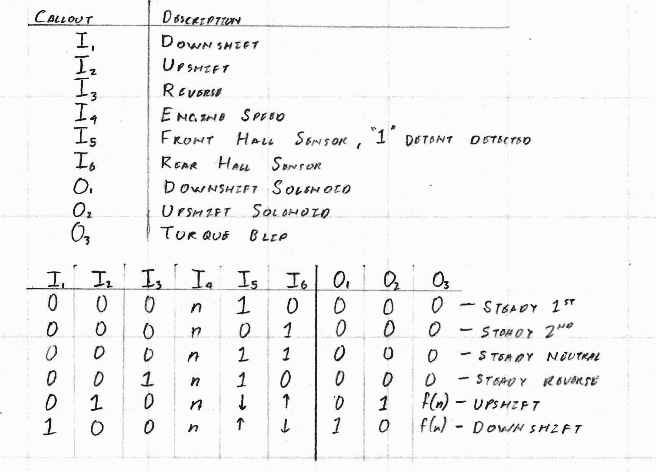 CALLOUT DESCRIPTION
I₁ DOWNSHIFT
I₂ UPSHIFT
I₃ REVERSE
I₄ ENGINE SPEED
I₅ FRONT HALL SENSOR, "1" DETENT DETECTED
I₆ REAR HALL SENSOR
O₁ DOWNSHIFT SOLENOID
O₂ UPSHIFT SOLENOID
O₃ TORQUE BLIP
I₁ I₂ I₃ I₄ I₅ I₆ O₁ O₂ O₃
0 0 0 n 1 0 0 0 0 - STEADY 1ST
0 0 0 n 0 1 0 0 0 - STEADY 2ND
0 0 0 n 1 1 0 0 0 - STEADY NEUTRAL
0 0 1 n 1 0 0 0 0 - STEADY REVERSE
0 1 0 n ↓ ↑ 0 1 f(n) - UPSHIFT
1 0 0 n ↑ ↓ 1 0 f(n) - DOWNSHIFT